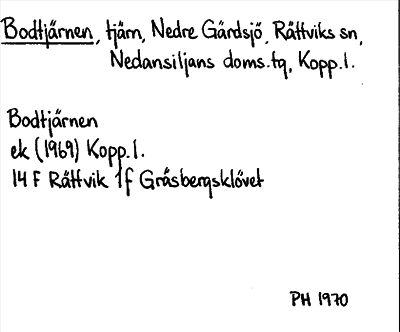 Bodtjärnen, tjärn, Nedre Gärdsjö, Rättviks sn,
Nedansiljans doms.tq, Kopp.l.
Bodtjärnen
ek (1969) Kopp.l.
14 F Rättvik 1f Gråsbergsklövet
PH 1970